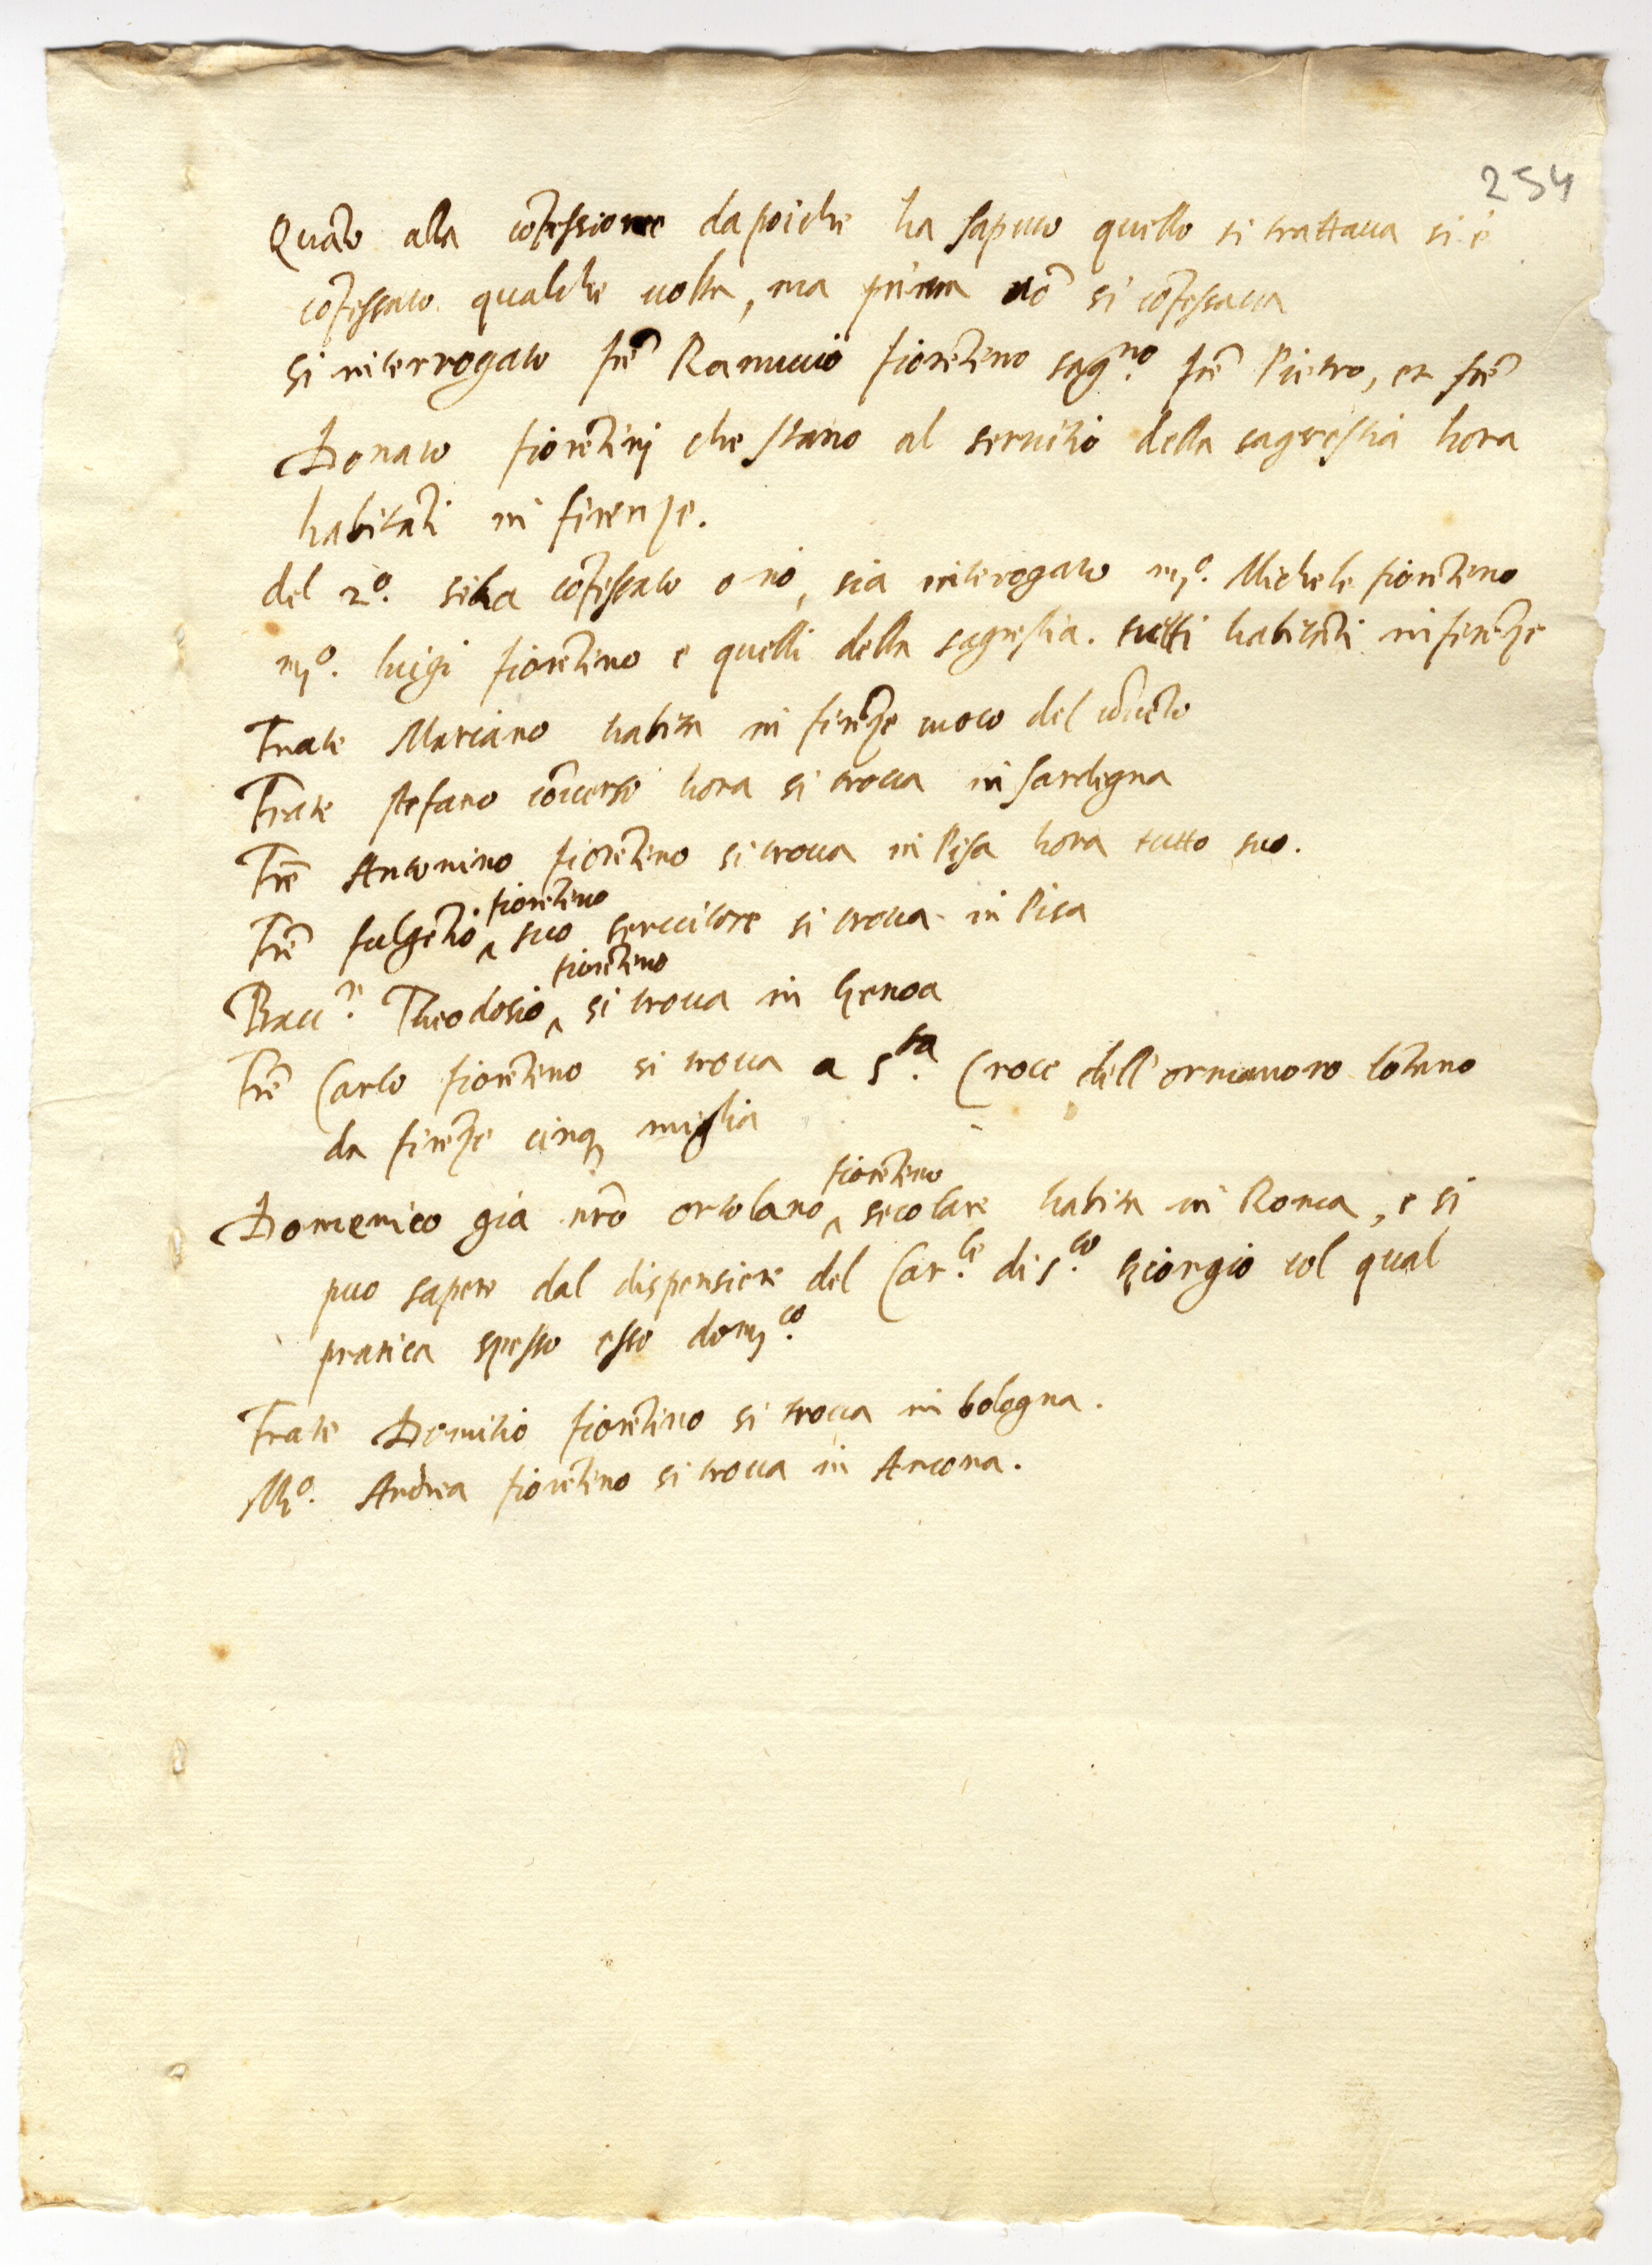 254
Quãto alla cõfessione dapoiche ha saputo quello si trattaua si è
cõfessato qualche uolta, ma prima nõ si cõfessaua
si interrogato frẽ Ranuccio fiorẽtino sag.no frẽ Pietro, et frẽ
Donato fiorẽtinj che stãno al seruitio della sagrestia hora
habitãti in firenze.
del 2º. se ha cõfessato o nò, sia interogato mº. Michele fiorẽtino
mº. luigi fiorẽtino e quelli della sagrestia. tutti habitãti in firẽze
Frate Mariano habita in firẽze cuoco del cõuẽto
Frate stefano cõuerso hora si troua in Sardegna
Frẽ Antonino fiorẽtino si troua in Pisa hora tutto suo.
Frẽ fulgẽtio ^ fiorẽtino suo seruitore si troua in Pisa
Bacc.r Theodosio ^ fiorẽtino si troua in Genoa
Frẽ Carlo fiorẽtino si troua a S.ta Croce dell'ormanoro lõtano
da firẽze cinq miglia
Domenico gia nrõ ortolano ^ fiorẽtino secolare habita in Roma, e si
puo sapere dal dispensiere del Car.le di s.to Giorgio col qual
pratica spesso esso dom.co
Frate Domitio fiorẽtino si troua in bologna.
Mº. Andrea fiorẽtino si troua in Ancona.